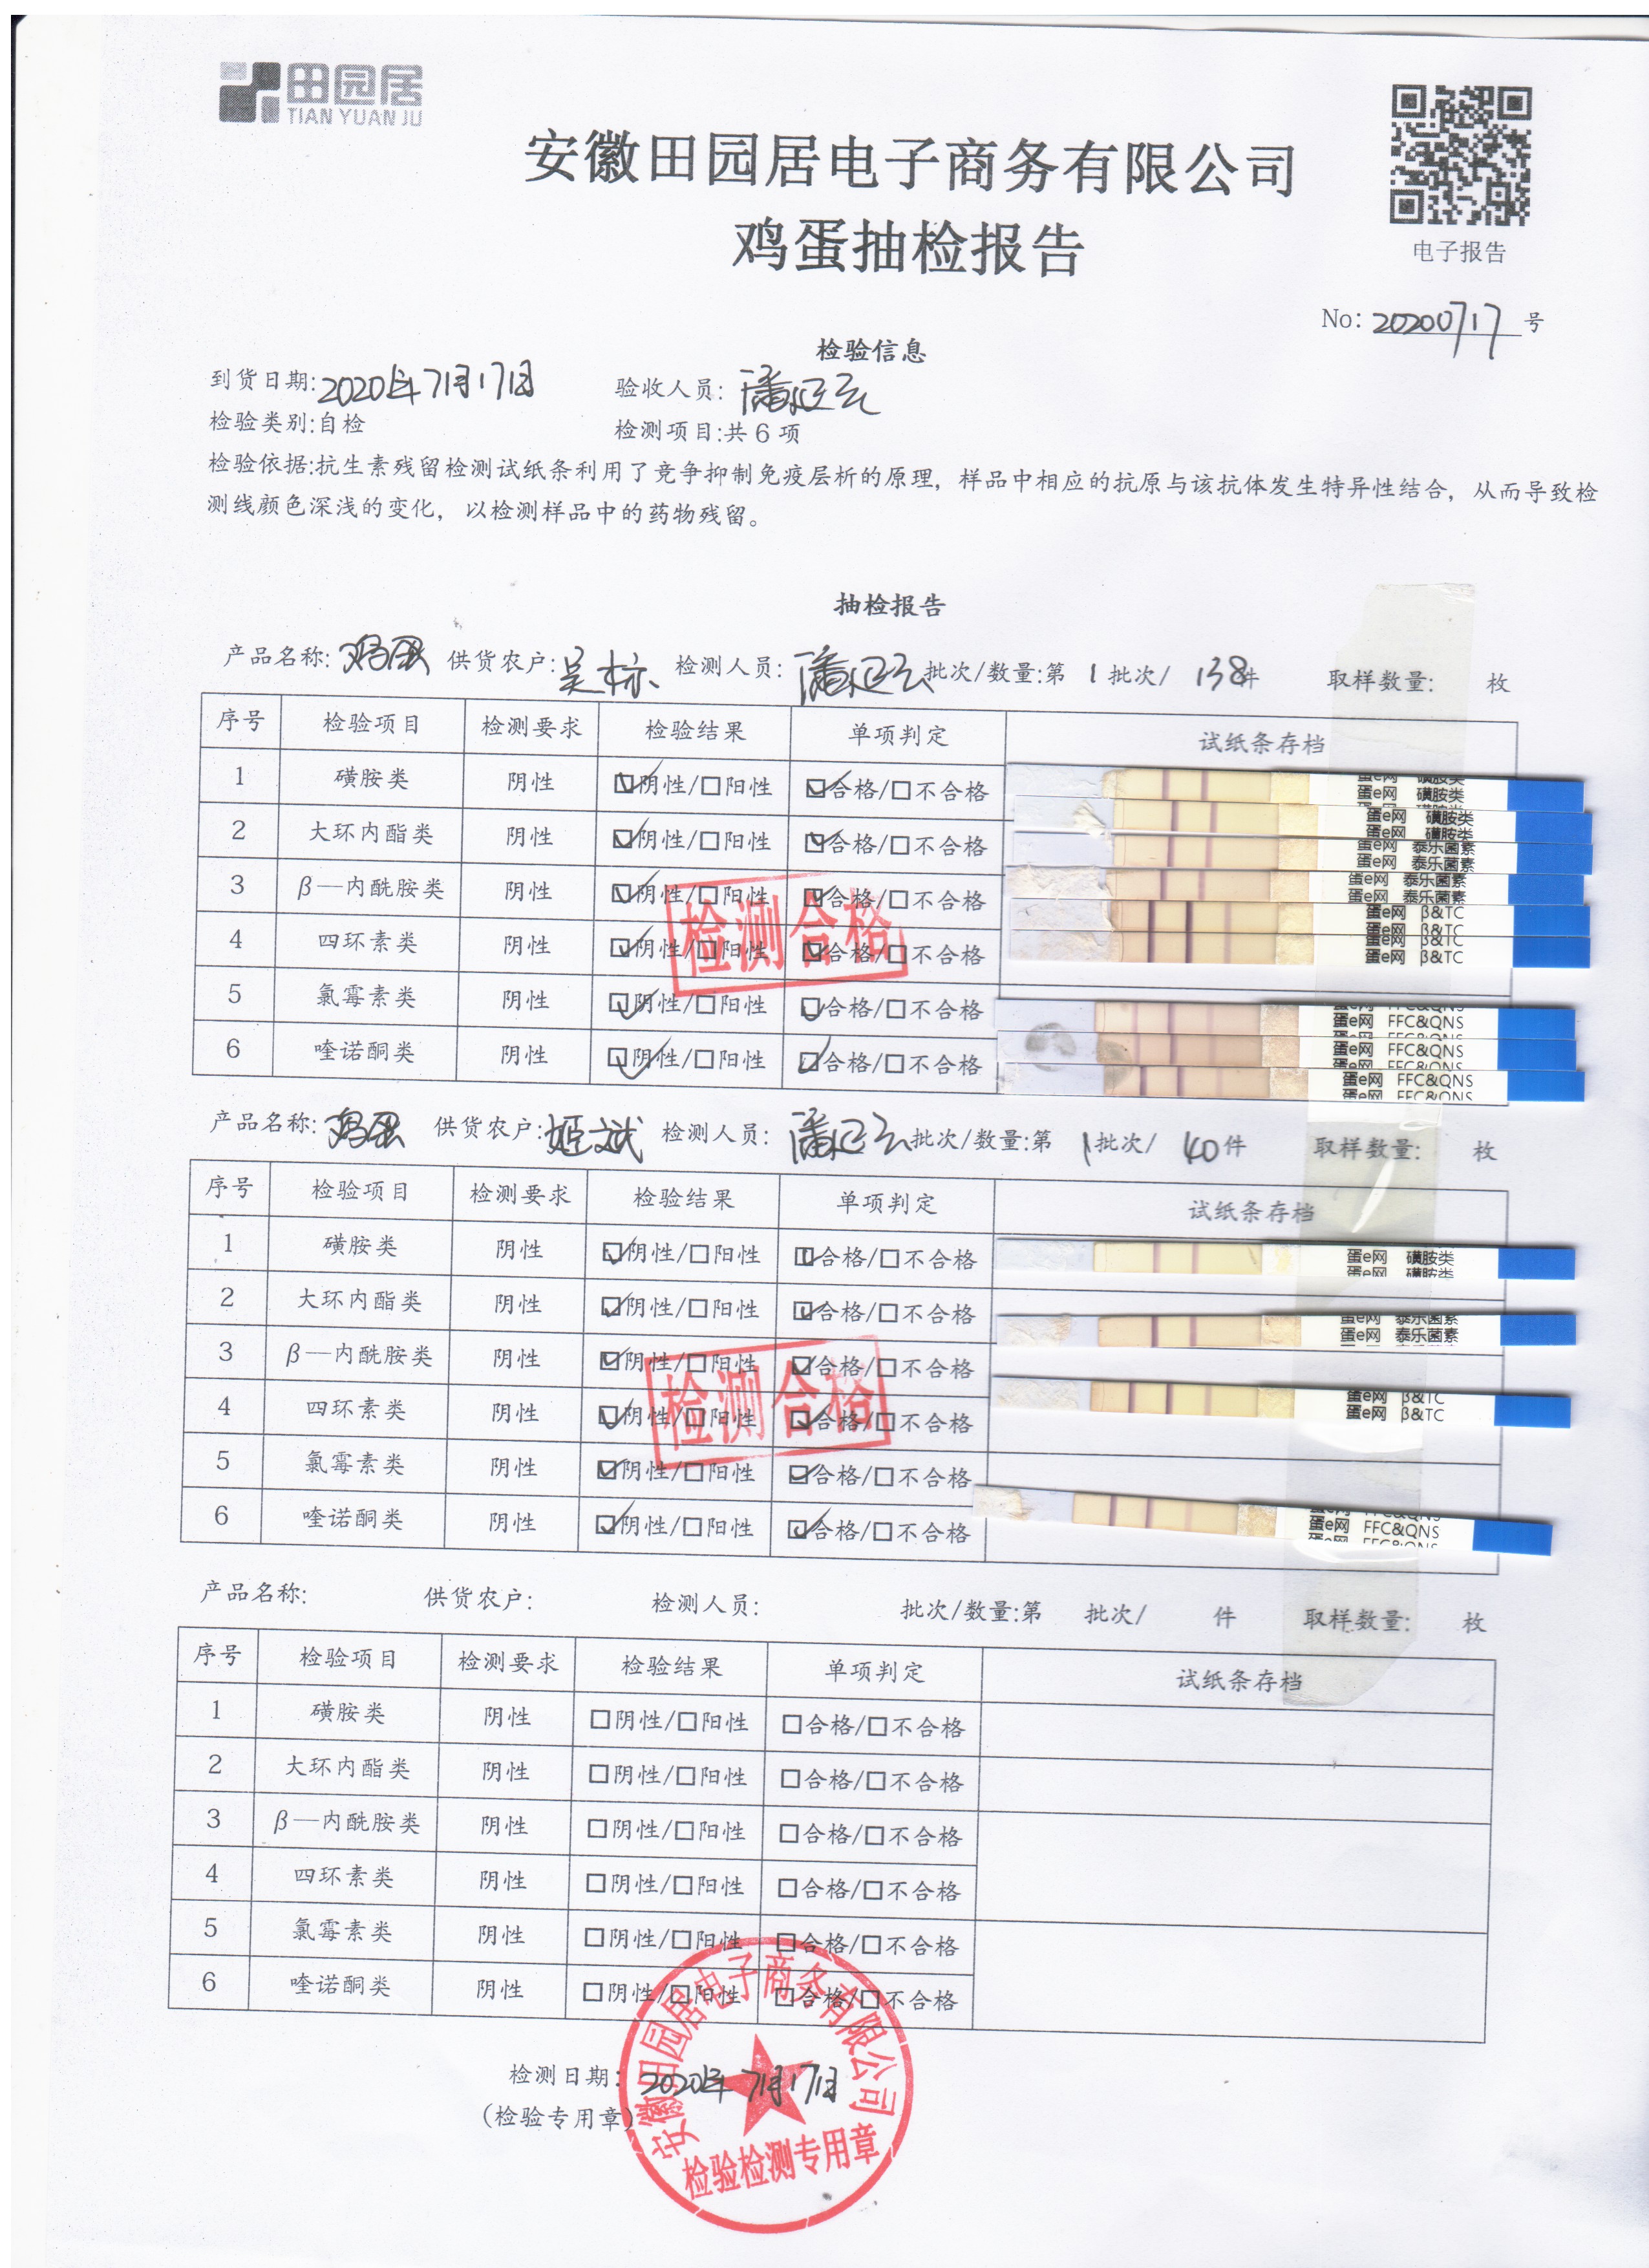 田园居
TIAN YUAN JU
安徽田园居电子商务有限公司
鸡蛋抽检报告
电子报告
No: 20200717 号
检验信息
到货日期:2020年7月17日 验收人员: 潘
检验类别:自检 检测项目:共 6 项
检验依据:抗生素残留检测试纸条利用了竞争抑制免疫层析的原理，样品中相应的抗原与该抗体发生特异性结合，从而导致检
测线颜色深浅的变化，以检测样品中的药物残留。
抽检报告
产品名称: 鸡蛋 供货农户: 吴标 检测人员: 潘 批次/数量:第 1 批次/ 138件 取样数量: 枚
序号 检验项目 检测要求 检验结果 单项判定 试纸条存档
1 磺胺类 阴性 ☑阴性/☐阳性 ☑合格/☐不合格 蛋e网 磺胺类
蛋e网 磺胺类
蛋e网 磺胺类
2 大环内酯类 阴性 ☑阴性/☐阳性 ☑合格/☐不合格 蛋e网 磺胺类
蛋e网 泰乐菌素
蛋e网 泰乐菌素
3 β—内酰胺类 阴性 ☑阴性/☐阳性 ☑合格/☐不合格 蛋e网 泰乐菌素
蛋e网 泰乐菌素
蛋e网 β&TC
蛋e网 β&TC
4 四环素类 阴性 ☑阴性/☐阳性 ☑合格/☐不合格 蛋e网 β&TC
蛋e网 β&TC
检测合格
5 氯霉素类 阴性 ☑阴性/☐阳性 ☑合格/☐不合格 蛋e网 FFC&QNS
蛋e网 FFC&QNS
6 喹诺酮类 阴性 ☑阴性/☐阳性 ☑合格/☐不合格 蛋e网 FFC&QNS
蛋e网 FFC&QNS
蛋e网 FFC&QNS
蛋e网 FFC&QNS
产品名称: 鸡蛋 供货农户: 姬斌 检测人员: 潘 批次/数量:第 1 批次/ 40 件 取样数量: 枚
序号 检验项目 检测要求 检验结果 单项判定 试纸条存档
1 磺胺类 阴性 ☑阴性/☐阳性 ☑合格/☐不合格 蛋e网 磺胺类
蛋e网 磺胺类
2 大环内酯类 阴性 ☑阴性/☐阳性 ☑合格/☐不合格 蛋e网 泰乐菌素
蛋e网 泰乐菌素
3 β—内酰胺类 阴性 ☑阴性/☐阳性 ☑合格/☐不合格
4 四环素类 阴性 ☑阴性/☐阳性 ☑合格/☐不合格 蛋e网 β&TC
蛋e网 β&TC
检测合格
5 氯霉素类 阴性 ☑阴性/☐阳性 ☑合格/☐不合格
6 喹诺酮类 阴性 ☑阴性/☐阳性 ☑合格/☐不合格 蛋e网 FFC&QNS
蛋e网 FFC&QNS
蛋e网 FFC&QNS
产品名称: 供货农户: 检测人员: 批次/数量:第 批次/ 件 取样数量: 枚
序号 检验项目 检测要求 检验结果 单项判定 试纸条存档
1 磺胺类 阴性 ☐阴性/☐阳性 ☐合格/☐不合格
2 大环内酯类 阴性 ☐阴性/☐阳性 ☐合格/☐不合格
3 β—内酰胺类 阴性 ☐阴性/☐阳性 ☐合格/☐不合格
4 四环素类 阴性 ☐阴性/☐阳性 ☐合格/☐不合格
5 氯霉素类 阴性 ☐阴性/☐阳性 ☐合格/☐不合格
6 喹诺酮类 阴性 ☐阴性/☐阳性 ☐合格/☐不合格
检测日期: 2020年7月17日
(检验专用章)
安徽田园居电子商务有限公司
检验检测专用章